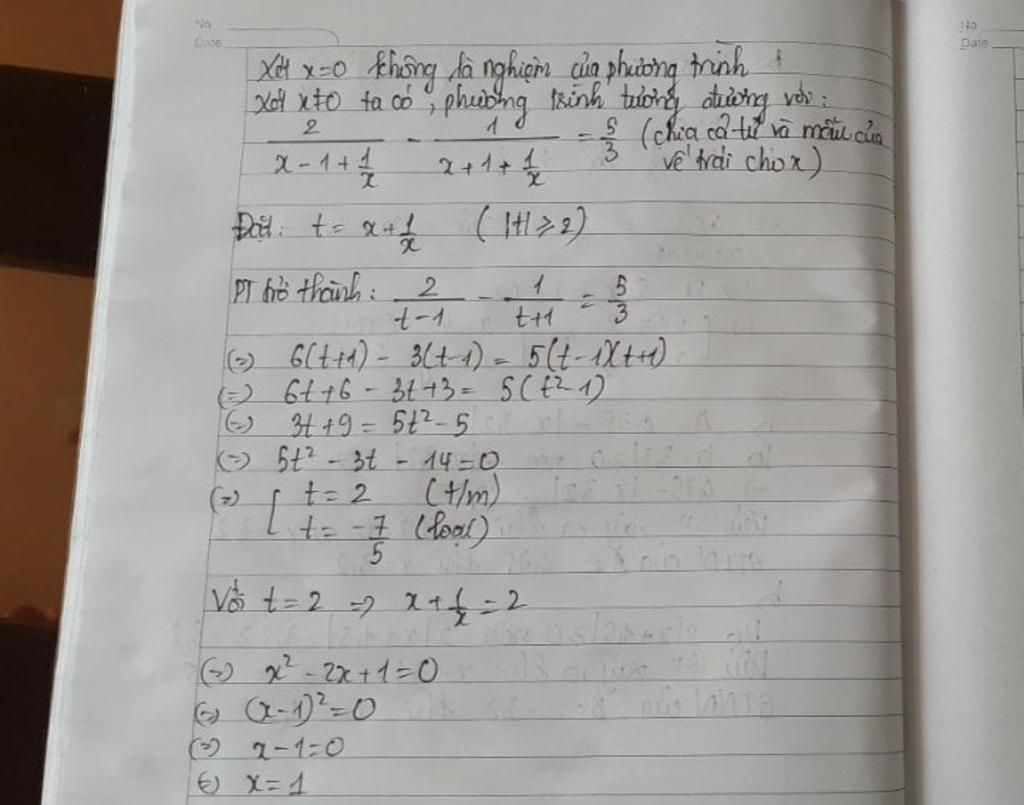 No
Date
Xét x=0 không là nghiệm của phương trình
Xét x≠0 ta có, phương trình tương đương với:
2/(x-1+1/x) - 1/(x+1+1/x) = 5/3 (chia cả tử và mẫu của
vế trái cho x)
Đặt: t = x+1/x (|t|≥2)
PT trở thành: 2/(t-1) - 1/(t+1) = 5/3
(=) 6(t+1) - 3(t-1) = 5(t-1)(t+1)
(=) 6t+6 - 3t+3 = 5(t²-1)
(=) 3t+9 = 5t²-5
(=) 5t² - 3t - 14=0
(=) [ t=2 (t/m)
t= -7/5 (loại)
Với t=2 => x+1/x=2
(=) x² - 2x+1=0
(=) (x-1)²=0
(=) x-1=0
(=) x=1
No
Date